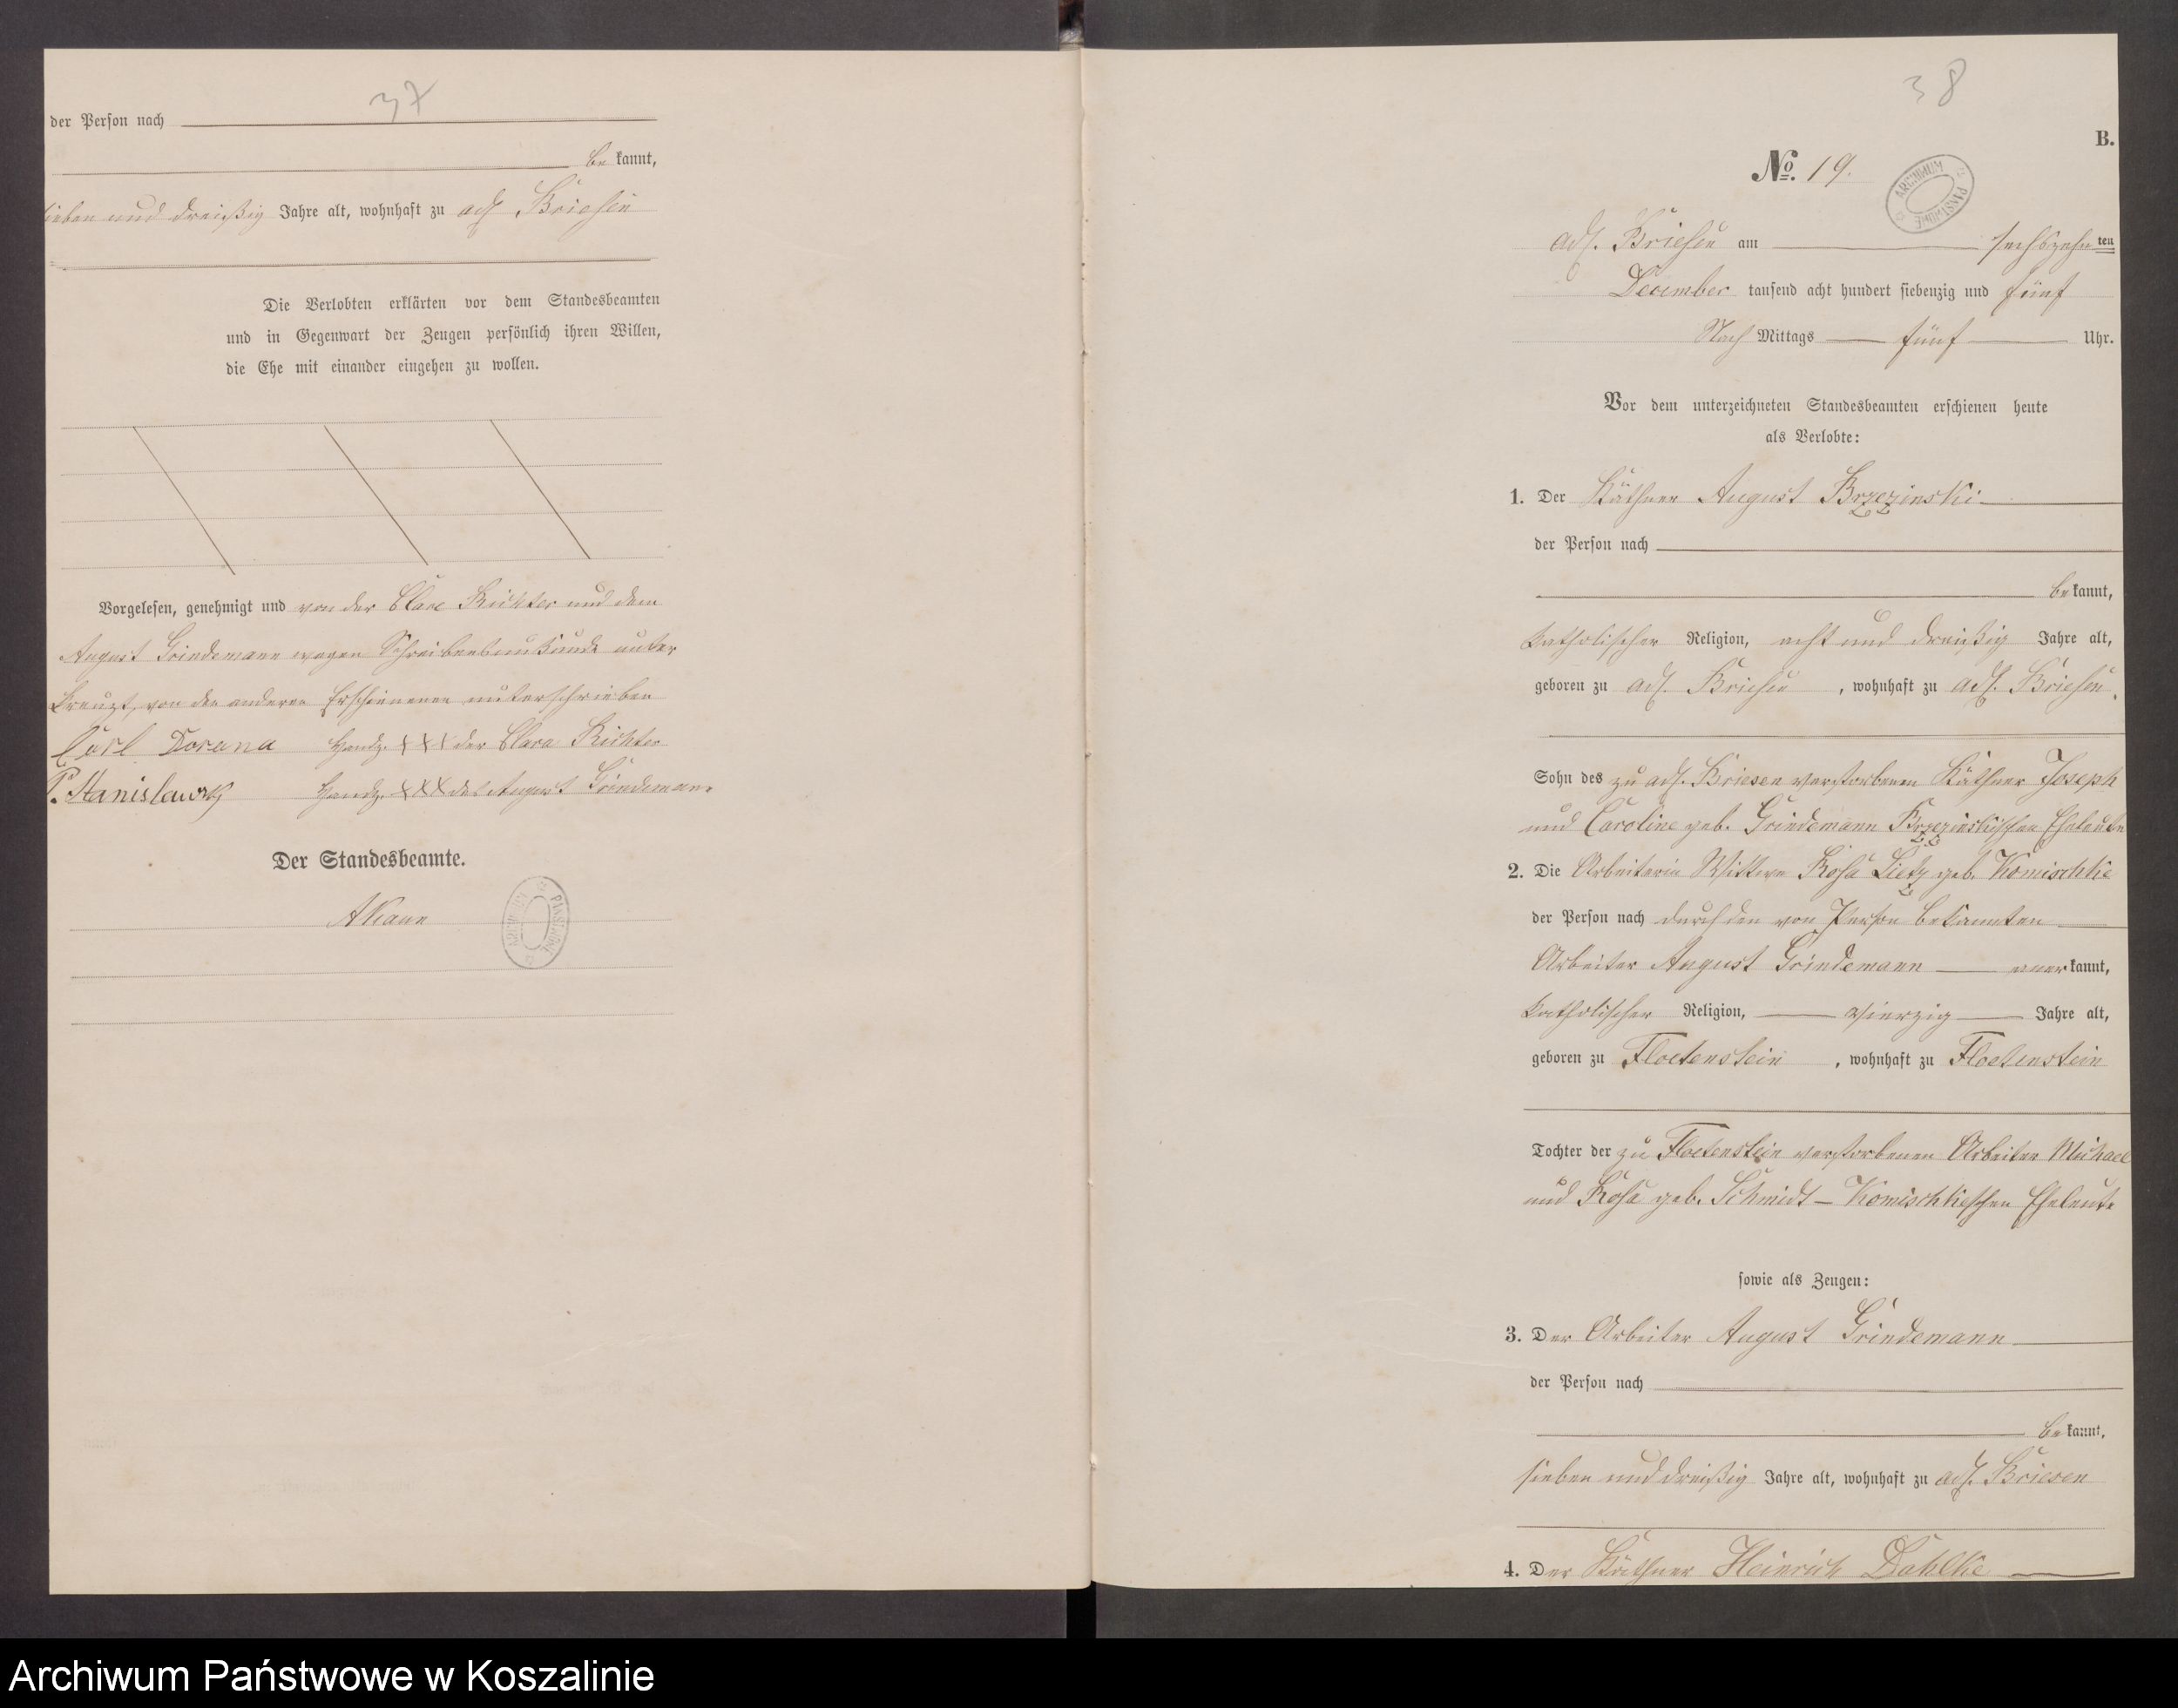 37
der Person nach
be kannt,
sieben und dreißig Jahre alt, wohnhaft zu adl Briesen
Die Verlobten erklärten vor dem Standesbeamten
und in Gegenwart der Zeugen persönlich ihren Willen,
die Ehe mit einander eingehen zu wollen.
Vorgelesen, genehmigt und von der Clara Richter und dem
August Grindemann wegen Schreibensunkunde unter
kreuzt, von den anderen Erschienenen unterschrieben
Carl Dorana Handz. XXX der Clara Richter
P. Stanislawsky Handz. XXX des August Grindemann
Der Standesbeamte.
ARCHIWUM PAŃSTWOWE
38
B.
No. 19.
ARCHIWUM PAŃSTWOWE
adl. Briesen am sechszehn ten
December tausend acht hundert siebenzig und fünf
Nach Mittags fünf Uhr.
Vor dem unterzeichneten Standesbeamten erschienen heute
als Verlobte:
1. Der Käthner August Brzezinski
der Person nach
be kannt,
katholischer Religion, acht und dreißig Jahre alt,
geboren zu adl. Briesen, wohnhaft zu adl. Briesen.
Sohn des zu adl. Briesen verstorbenen Käthner Joseph
und Caroline geb. Grindemann Brzezinskischen Eheleute
2. Die Arbeiterin Wittwe Rosa Lietz geb. Komischke
der Person nach durch den von Person bekannten
Arbeiter August Grindemann aner kannt,
katholischer Religion, vierzig Jahre alt,
geboren zu Floetenstein, wohnhaft zu Floetenstein
Tochter der zu Floetenstein verstorbenen Arbeiter Michael
und Rosa geb. Schmidt - Komischkeschen Eheleute
sowie als Zeugen:
3. Der Arbeiter August Grindemann
der Person nach
be kannt,
sieben und dreißig Jahre alt, wohnhaft zu adl. Briesen
4. Der Käthner Heinrich Dahlke
Archiwum Państwowe w Koszalinie